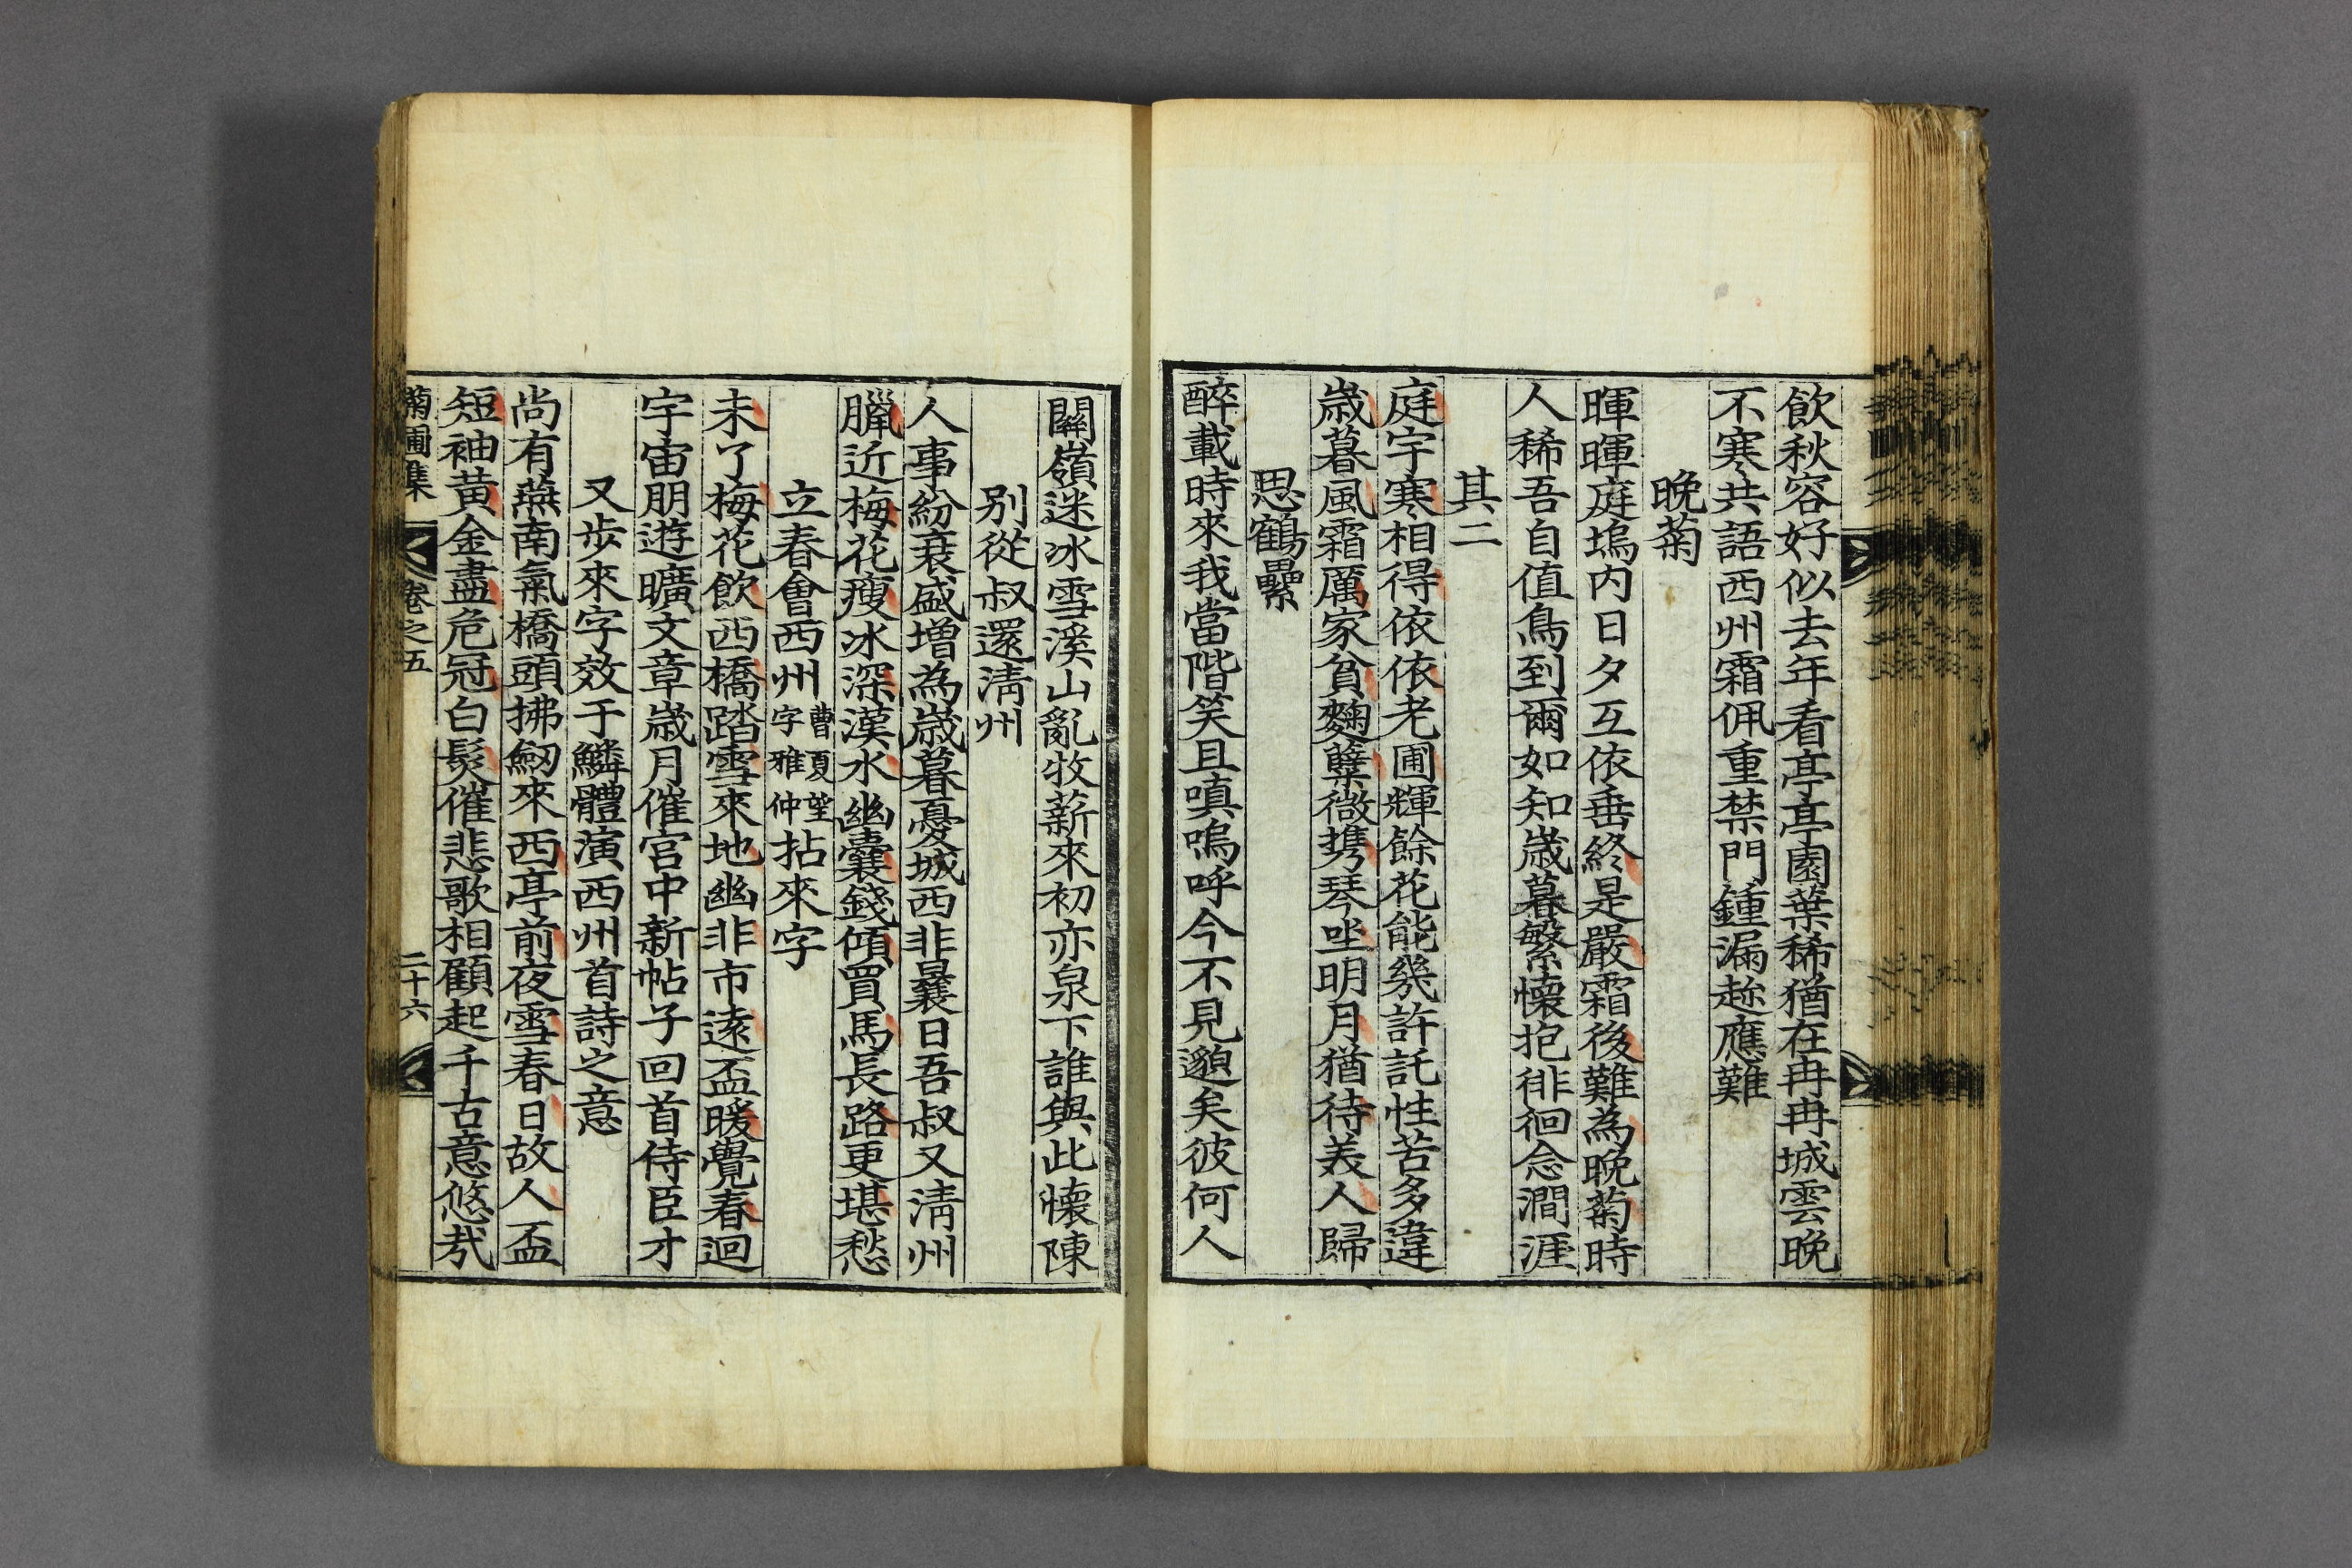 飲秋容好似去年看亭亭園葉稀猶在冉冉城雲晚
不寒共語西州霜佩重禁門鍾漏趂應難
晚菊
暉暉庭塢內日夕互依垂終是嚴霜後難為晚菊時
人稀吾自值鳥到爾如知歲暮繁懷抱徘徊念澗涯
其二
庭宇寒相得依依老圃輝餘花能幾許託性苦多違
歲暮風霜厲家貧麴糵微携琴坐明月猶待美人歸
思鶴壘
醉載時來我當階笑且嗔嗚呼今不見邈矣彼何人
關嶺迷冰雪溪山亂牧薪來初亦泉下誰與此懷陳
別從叔還淸州
人事紛衰盛增為歲暮憂城西非曩日吾叔又淸州
臘近梅花瘦冰深漢水幽囊錢傾買馬長路更堪愁
立春會西州曹夏望字雅仲拈來字
未了梅花飮西橋踏雪來地幽非市遠盃暖覺春迴
宇宙朋遊曠文章歲月催宮中新帖子回首侍臣才
又步來字效于鱗體演西州首詩之意
尚有燕南氣橋頭拂劒來西亭前夜雪春日故人盃
短袖黃金盡危冠白髮催悲歌相顧起千古意悠哉
菊圃集 卷之五 二十六